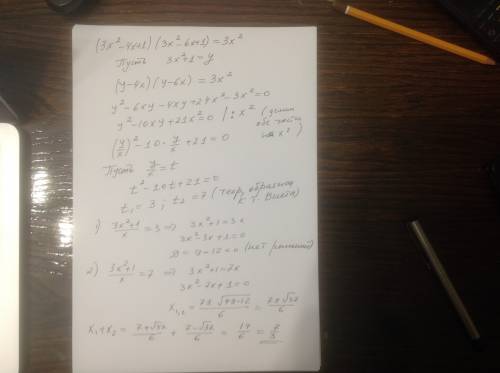 (3x²-4x+1)(3x²-6x+1)=3x²
Пусть 3x²+1=y
(y-4x)(y-6x)=3x²
y²-6xy-4xy+24x²-3x²=0
y²-10xy+21x²=0 |:x² (делим обе части на x²)
(y/x)²-10·y/x+21=0
Пусть y/x=t
t²-10t+21=0
t₁=3; t₂=7 (теор, обратная к т. Виета)
1) (3x²+1)/x=3 ⇒ 3x²+1=3x
3x²-3x+1=0
D=9-12<0 (нет решений)
2) (3x²+1)/x=7 ⇒ 3x²+1=7x
3x²-7x+1=0
x₁,₂=(7±√(49-12))/6=(7±√37)/6
x₁+x₂=(7+√37)/6+(7-√37)/6=14/6=7/3